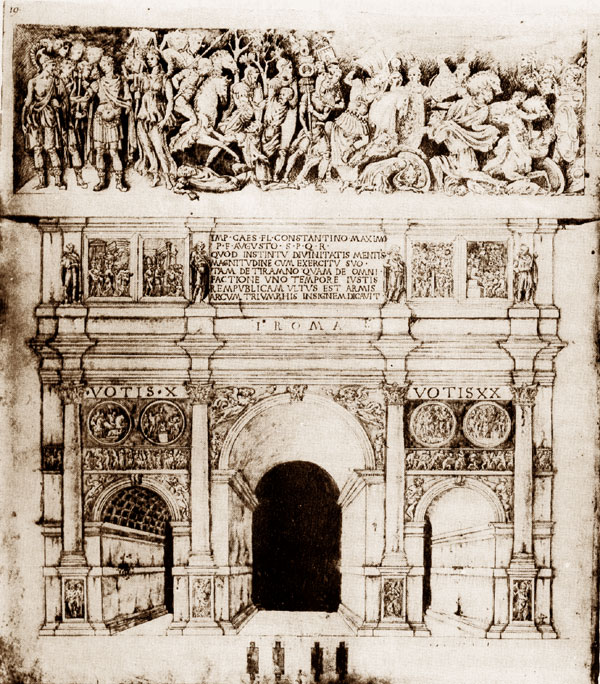 10
IMP·CAES·FL·CONSTANTINO·MAXIMO
P·F·AVGVSTO·S·P·Q·R·
QVOD INSTINTV DIVINITATIS MENTIS
MAGNITVDINE CVM EXERCITV SVO
TAM DE TIRAMNO QVAM DE OMNI
FACTIONE VNO TEMPORE IVSTIS
REMPVBLICAM VLTVS EST ARMIS
ARCVM TRIVMPHIS INSIGNEM DICAVIT
ROMA
VOTIS·X
VOTISXX